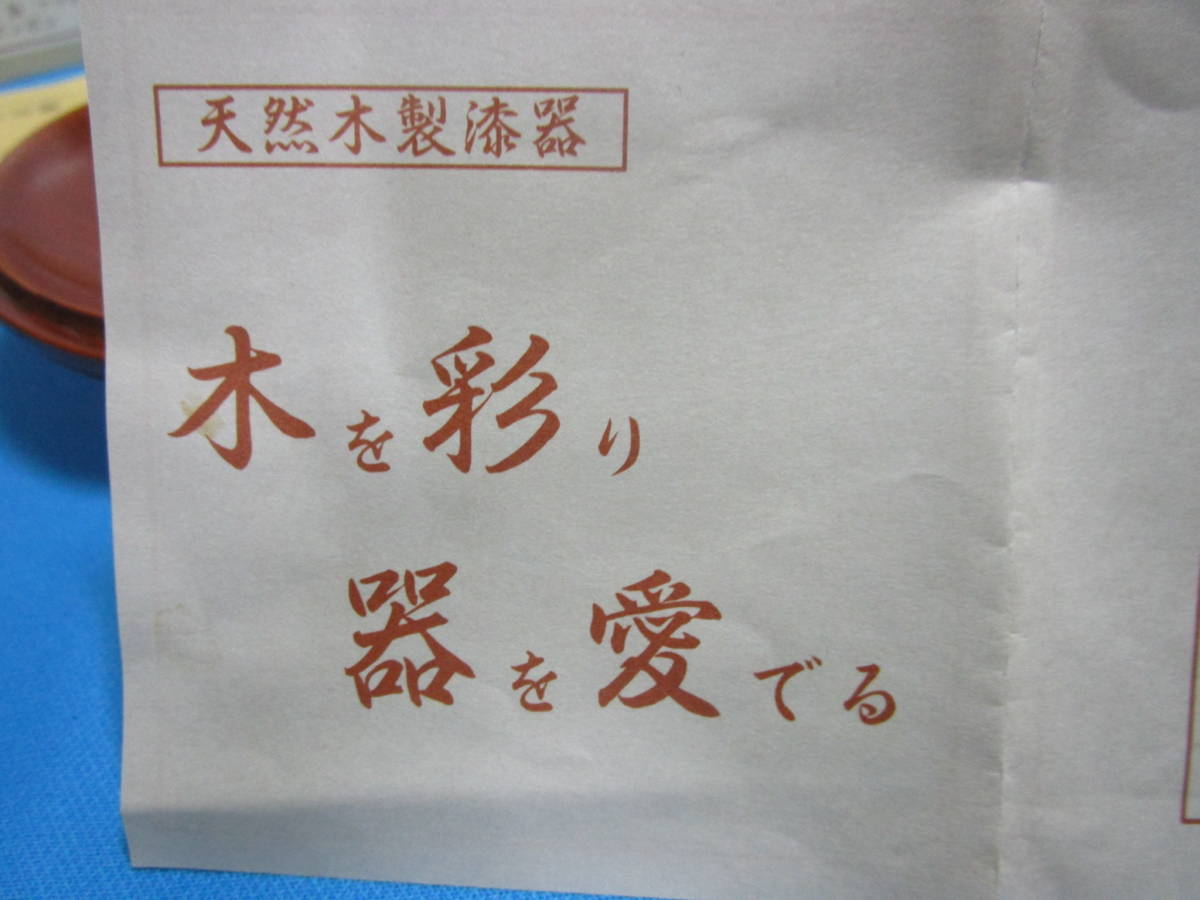 天然木製漆器
木を彩り
器を愛でる